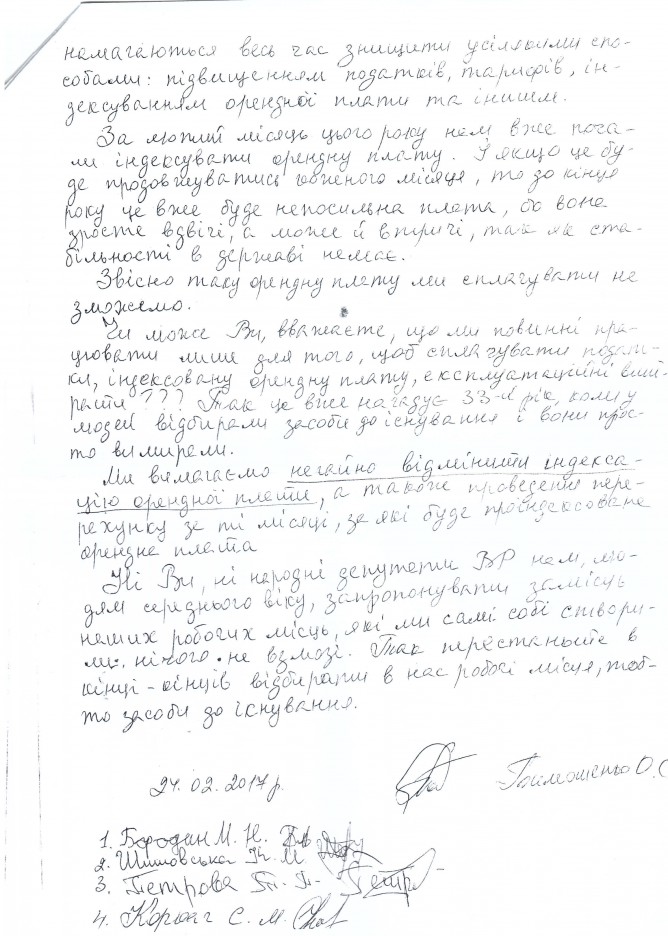 намагаються весь час знищити усілякими спо-
собами: підвищенням податків, тарифів, ін-
дексуванням орендної плати та іншим.
За лютий місяць цього року нам вже поча-
ли індексувати орендну плату. І якщо це бу-
де продовжуватись кожного місяця, то до кінця
року це вже буде непосильна плата, бо вона
зросте вдвічі, а може й втричі, так як ста-
більності в державі немає.
Звісно таку орендну плату ми сплачувати не
зможемо.
Чи може Ви, вважаєте, що ми повинні пра-
цювати лише для того, щоб сплачувати подат-
ки, індексовану орендну плату, експлуатаційні
??? Так це вже нагадує 33-й рік, коли у
людей відбирали засоби до існування і вони прос-
то вимирали.
Ми вимагаємо негайно відмінити індекса-
цію орендної плати, а також проведення пере-
рахунку за ті місяці, за які буде проіндексована
орендна плата
Ні Ви, ні народні депутати ВР нам, лю-
дям середнього віку, запропонувати замість
наших робочих місць, які ми самі собі створи-
ли, нічого не взмозі. Так перестаньте в
кінці-кінців відбирати в нас робочі місця, тоб-
то засоби до існування.
24.02.2017 р. Тимошенко О.С
1. Бородин М. Н.
2.
3. Петрова Т. П.
4. С. М.